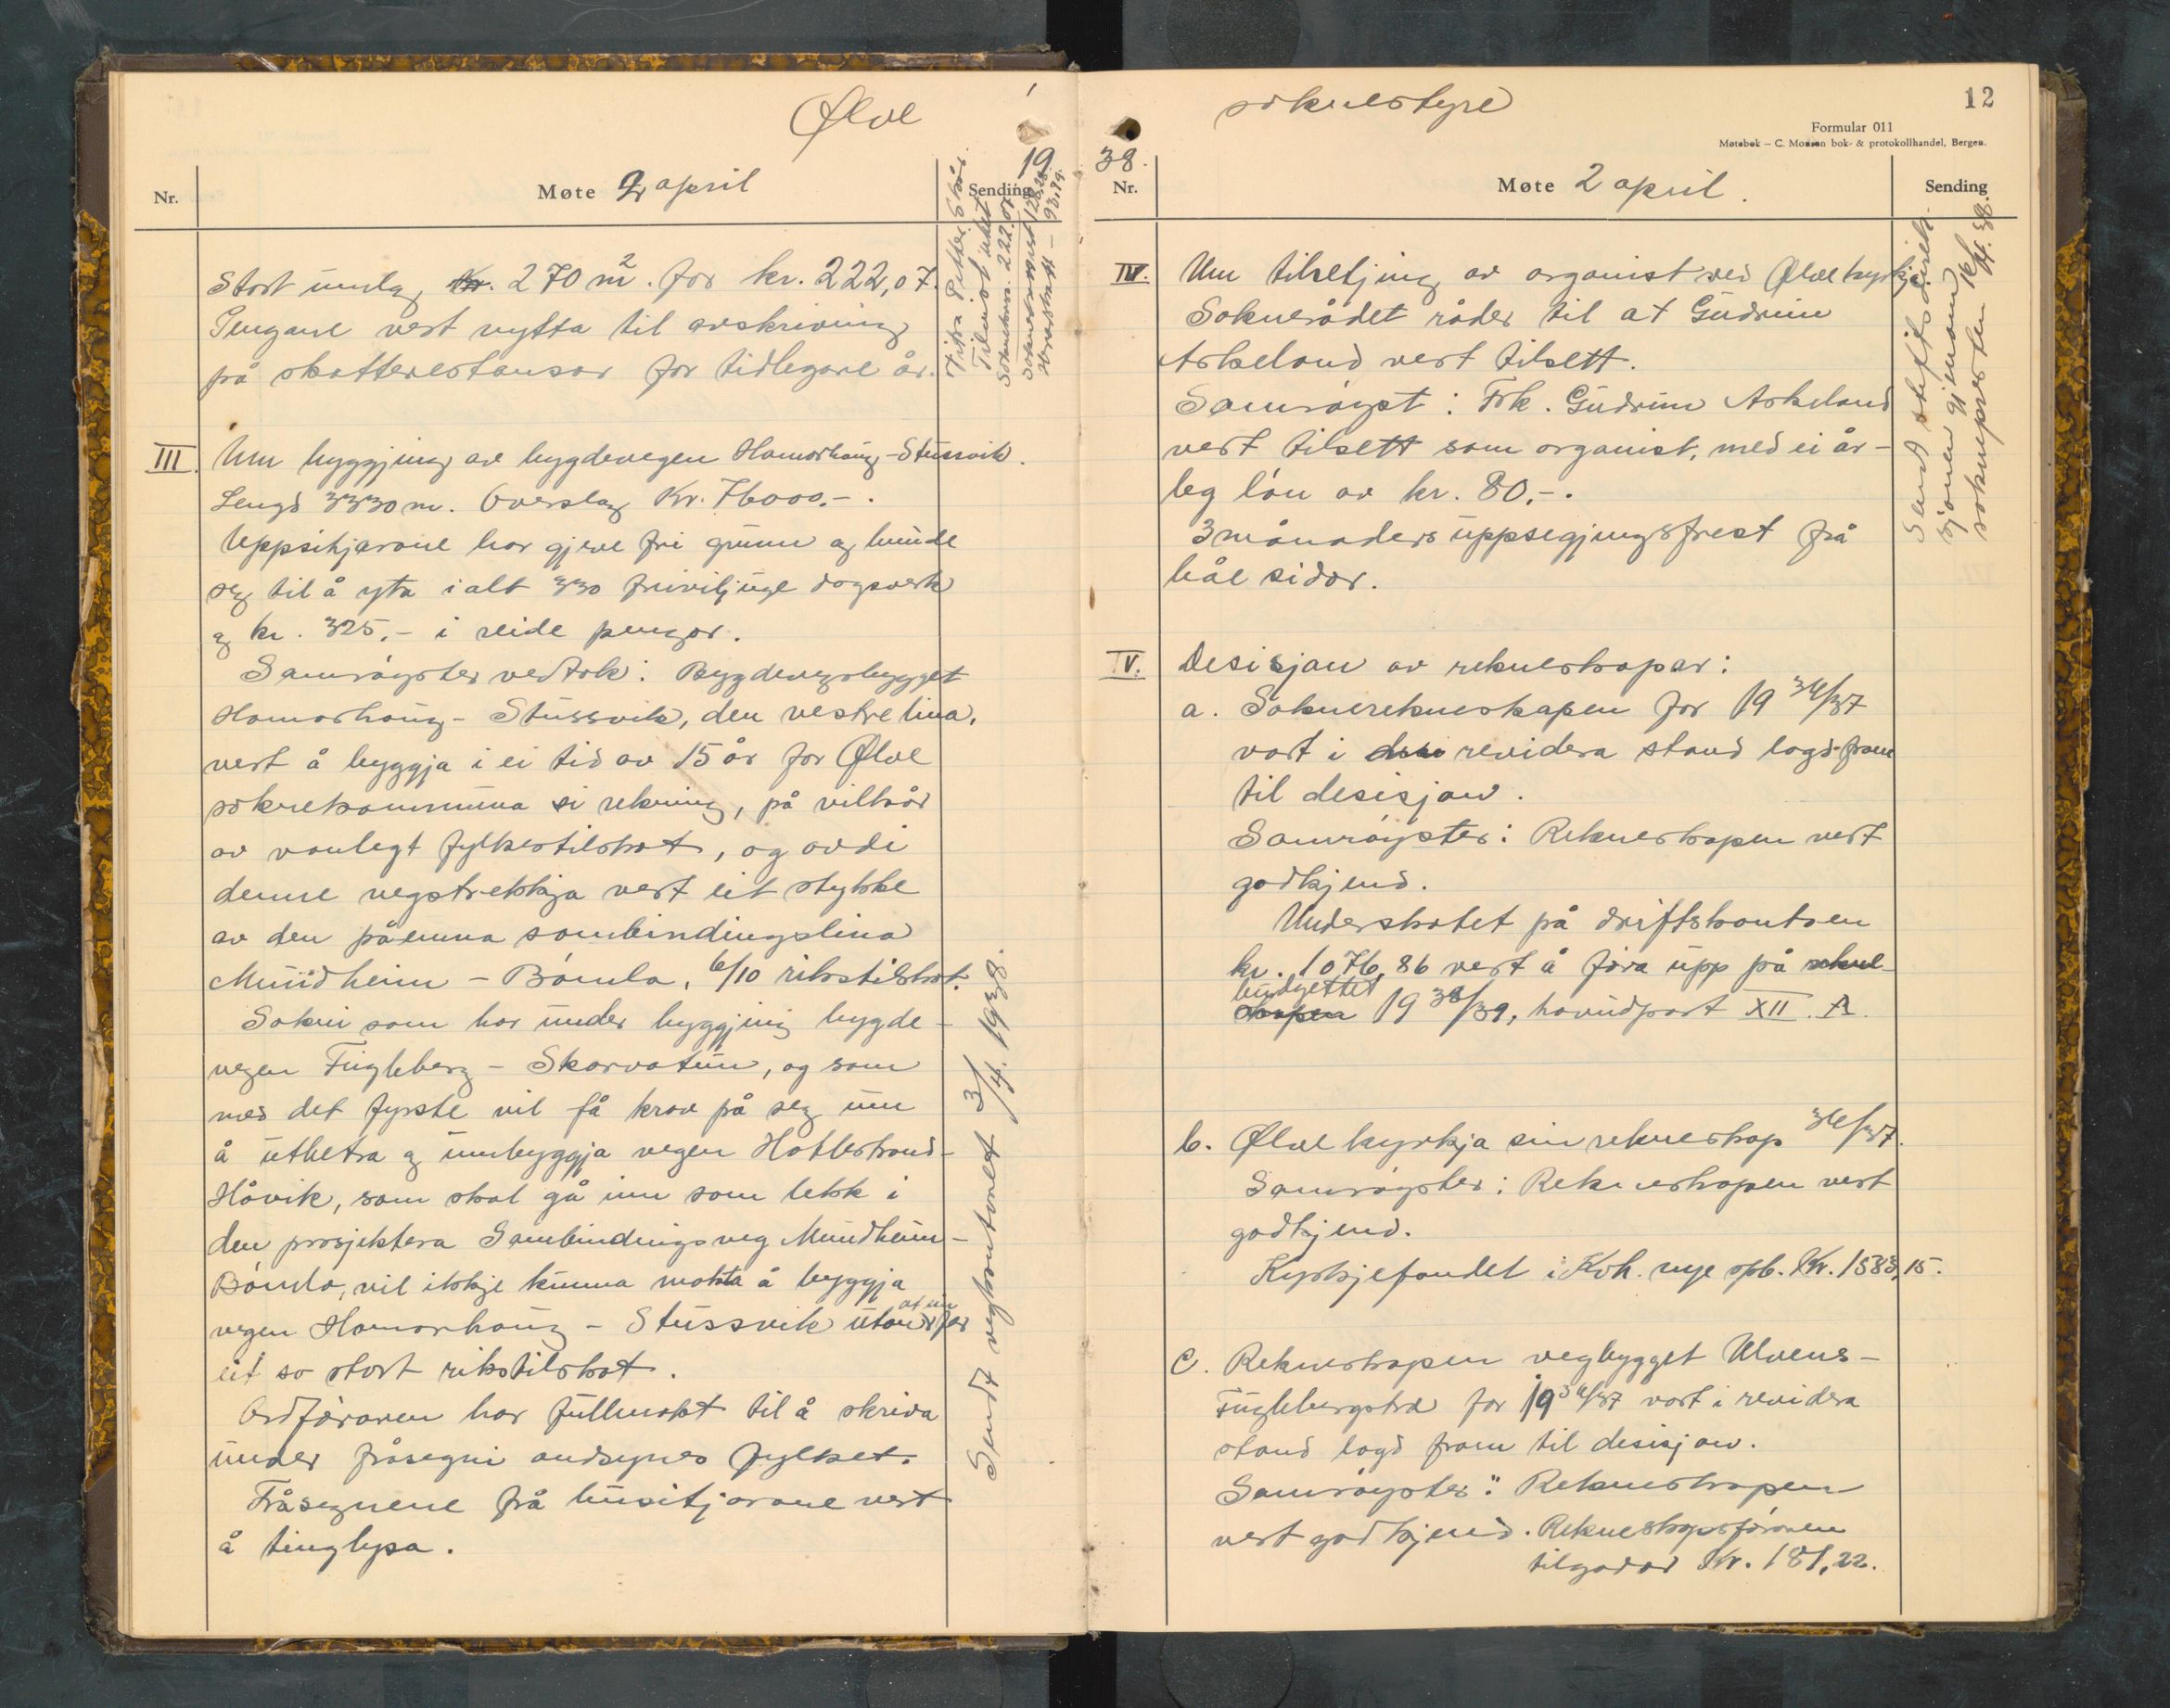 Ølve
19
Nr.
Møte 2 april
Sending
stort umlag 270 m². for kr. 222,07.
Pengane vert nytta til avskriving
på skatterestansar for tidlegare år.
III. Um byggjing av bygdevegen Hamarhaug-Stussvik.
Lengd 3330 m. Overslag Kr. 76000.-.
Uppsitjarane har gjeve fri grunn og bunde
seg til å yta i alt 330 friviljuge dagsverk
og kr. 325.- i reide pengar.
Samrøystes vedtok: Bygdevegsbygget
Hamarhaug - Stussvik, den vestre lina,
vert å byggja i ei tid av 15 år for Ølve
soknekommuna si rekning, på vilkår
av vanlegt fylkestilskot, og avdi
denne vegstrekkja vert eit stykke
av den påemna sambindingslina
Mundheim - Bømlo, 6/10 rikstilskot.
Sokni som har under byggjing bygde-
vegen Fugleberg - Skarvatun, og som
med det fyrste vil få krav på seg um
å utbetra og umbyggja vegen Hatlestrand-
Håvik, som skal gå inn som lekk i
den prosjektera Sambindingsveg Mundheim-
Bømlo, vil ikkje kunna makta å byggja
vegen Hamarhaug - Stussvik utan at ein fær
eit so stort rikstilskot.
Ordføraren har fullmakt til å skriva
under fråsegni andsynes fylket.
Fråsegnene frå busitjarane vert
å tinglysa.
Sendt vegkontoret 3/4. 1938.
soknestyre
12
Formular 011
Møtebok — C. Monsen bok- & protokollhandel, Bergen.
38.
Nr.
Møte 2 april.
Sending
IV. Um tilsetjing av organist ved Ølve kyrkja
Soknerådet råder til at Gudrun
Askeland vert tilsett.
Samrøyst: Frk. Gudrun Askeland
vert tilsett som organist, med ei år-
leg løn av kr. 80.-.
3 månaders uppsegjingsfrest frå
båe sidor.
Sendt stiftsdirek-
sjonen gjenom
soknepresten 16/4. 38.
V. Desisjon av rekneskapar:
a. Soknerekneskapen for 19 36/37
vart i revidera stand lagd fram
til desisjon.
Samrøystes: Rekneskapen vert
godkjend.
Underskotet på driftskontoen
kr. 1076,86 vert å føra upp på
budgettet 19 38/39, hovudpost XII. A.
b. Ølve kyrkja sin rekneskap 36/37.
Samrøystes: Rekneskapen vert
godkjend.
Kyrkjefondet i Kvh. nye spb. Kr. 1583,15.
c. Rekneskapen vegbygget Ulvens-
Fuglebergstrd for 19 36/37 vart i revidera
stand lagd fram til desisjon.
Samrøystes: Rekneskapen
vert godkjend. Rekneskapsføraren
tilgodar Kr. 181,22.